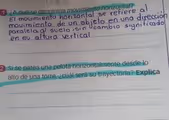 ¿A qué se denomina movimiento horizontal?
El movimiento horizontal se refiere al
movimiento de un objeto en una dirección
paralela al suelo, sin cambio significado
en su altura vertical
Si se patea una pelota horizontalmente desde lo
alto de una torre, ¿cuál será su trayectoria? Explica